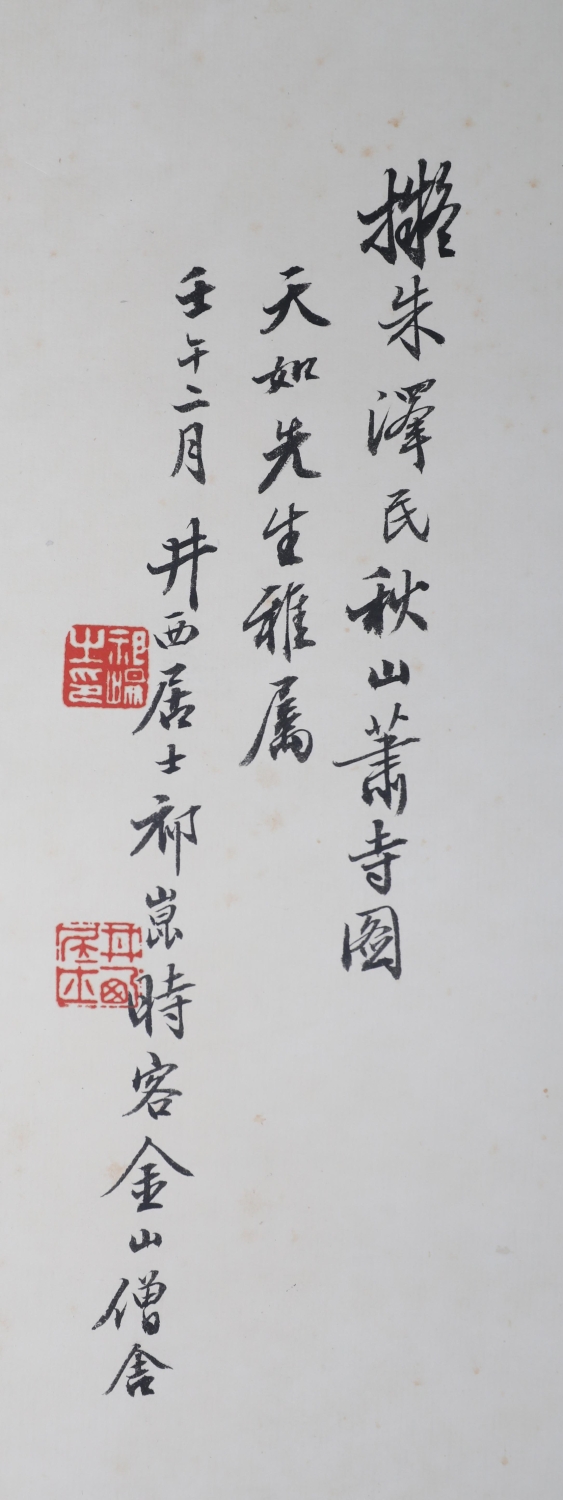 擬朱澤民秋山蕭寺圖
天如先生雅属
壬午二月井西居士祁崑時客金山僧舍
祁崑之印
井西居士